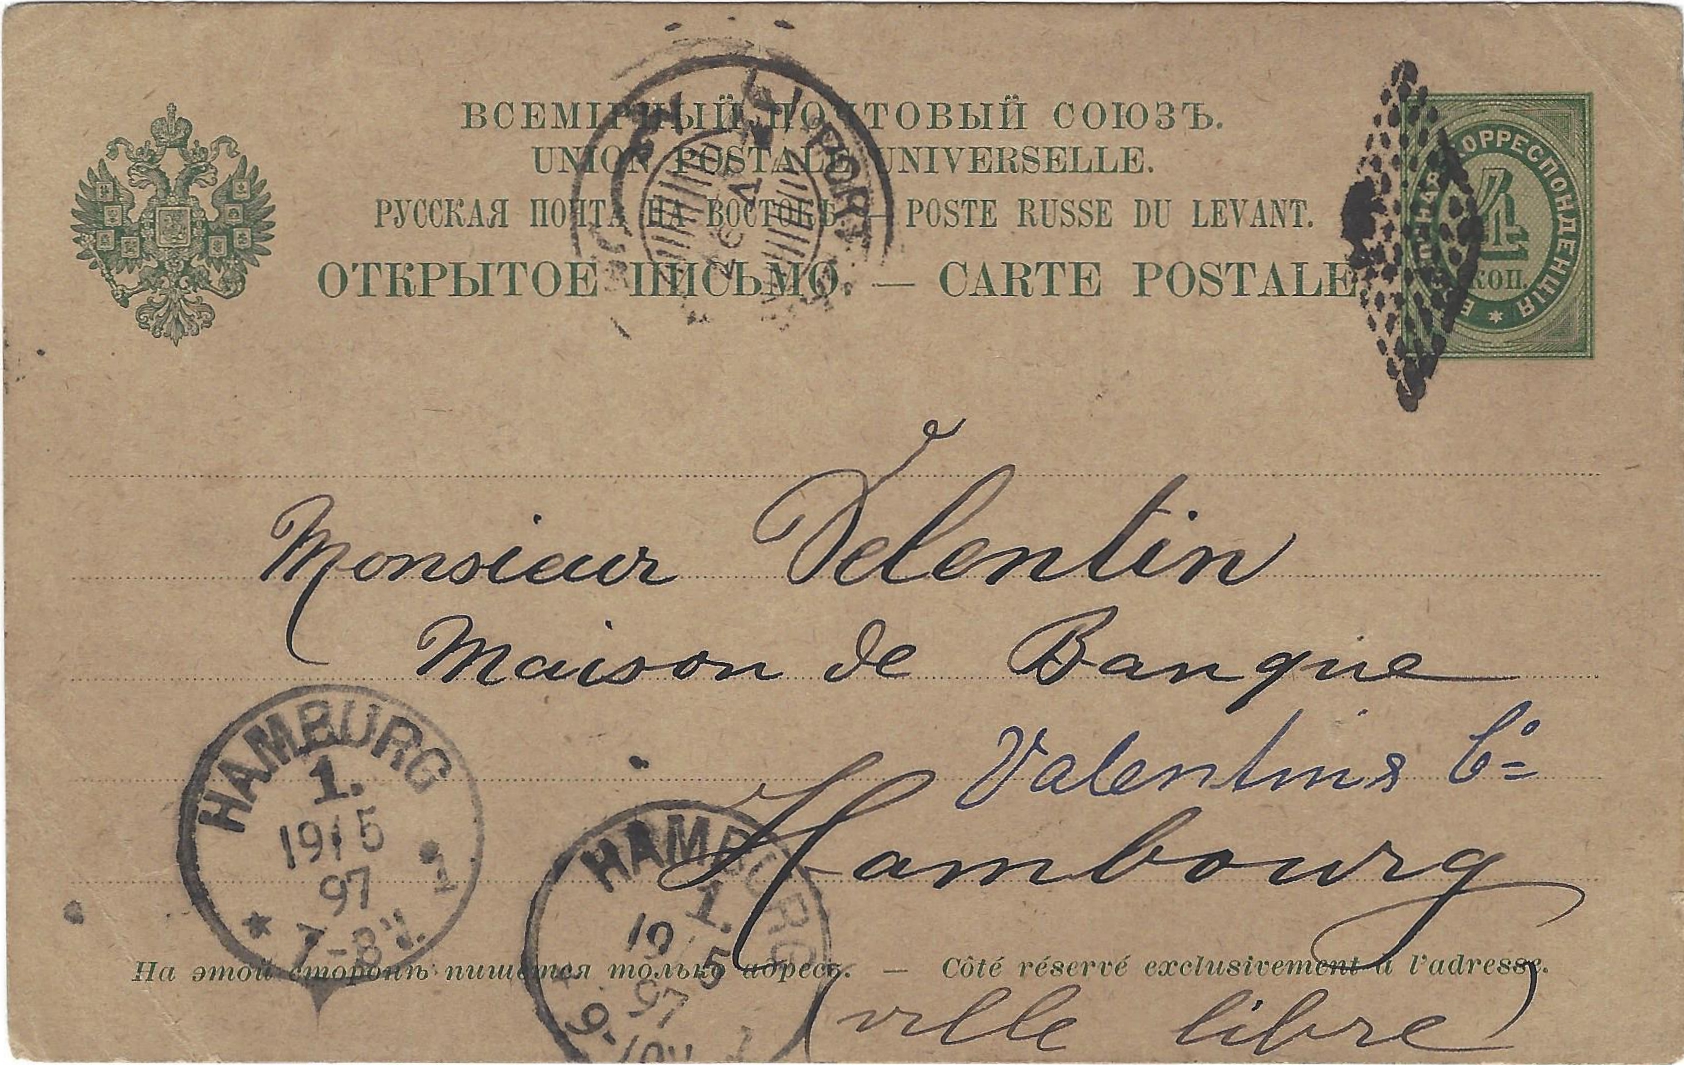 ВСЕМІРНЫЙ ПОЧТОВЫЙ СОЮЗЪ.
UNION POSTALE UNIVERSELLE.
РУССКАЯ ПОЧТА НА ВОСТОКѢ — POSTE RUSSE DU LEVANT.
ОТКРЫТОЕ ПИСЬМО — CARTE POSTALE
КОРРЕСПОНДЕНЦІЯ
4
КОП.
Monsieur Velentin
Maison de Banque
Valentins Co
Hambourg
(ville libre)
HAMBURG
1.
19/5
97
7-8V.
* 1
HAMBURG
1.
19/5
97
9-10V.
На этой сторонѣ пишется только адресъ. — Côté réservé exclusivement à l'adresse.